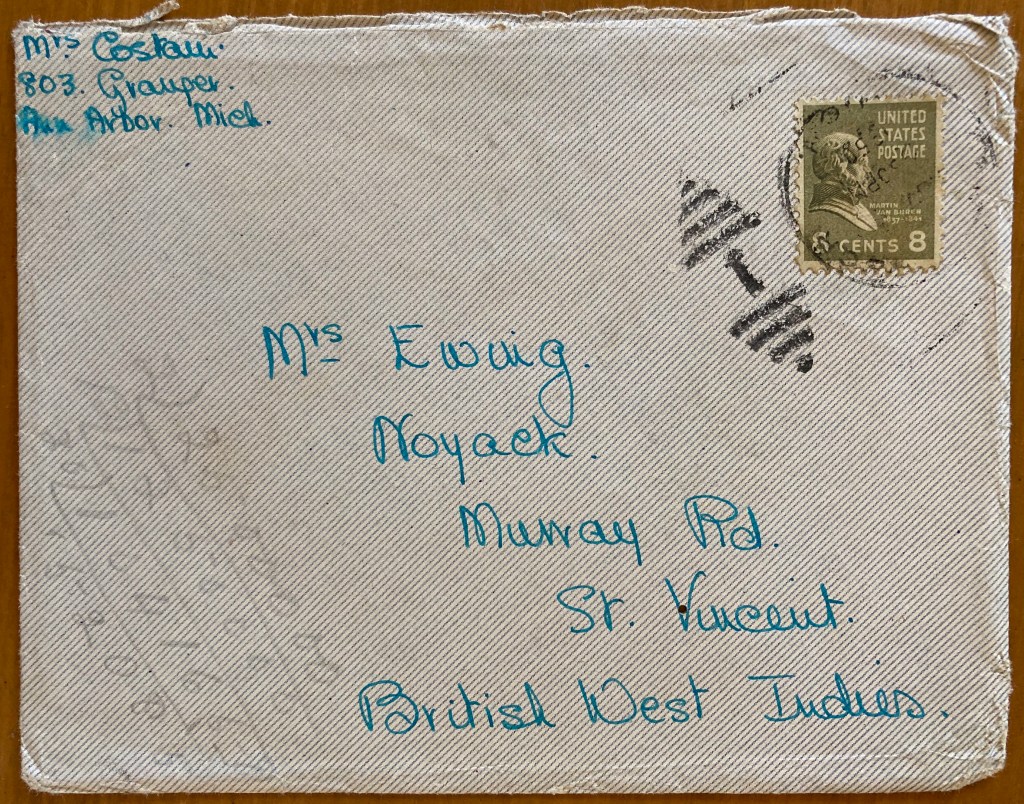 Mrs Costain.
803. Granger.
Ann Arbor. Mich.
UNITED
STATES
POSTAGE
MARTIN
VAN BUREN
1837-1841
8 CENTS 8
1
Mrs Ewing.
Noyack.
Murray Rd.
St. Vincent.
British West Indies.